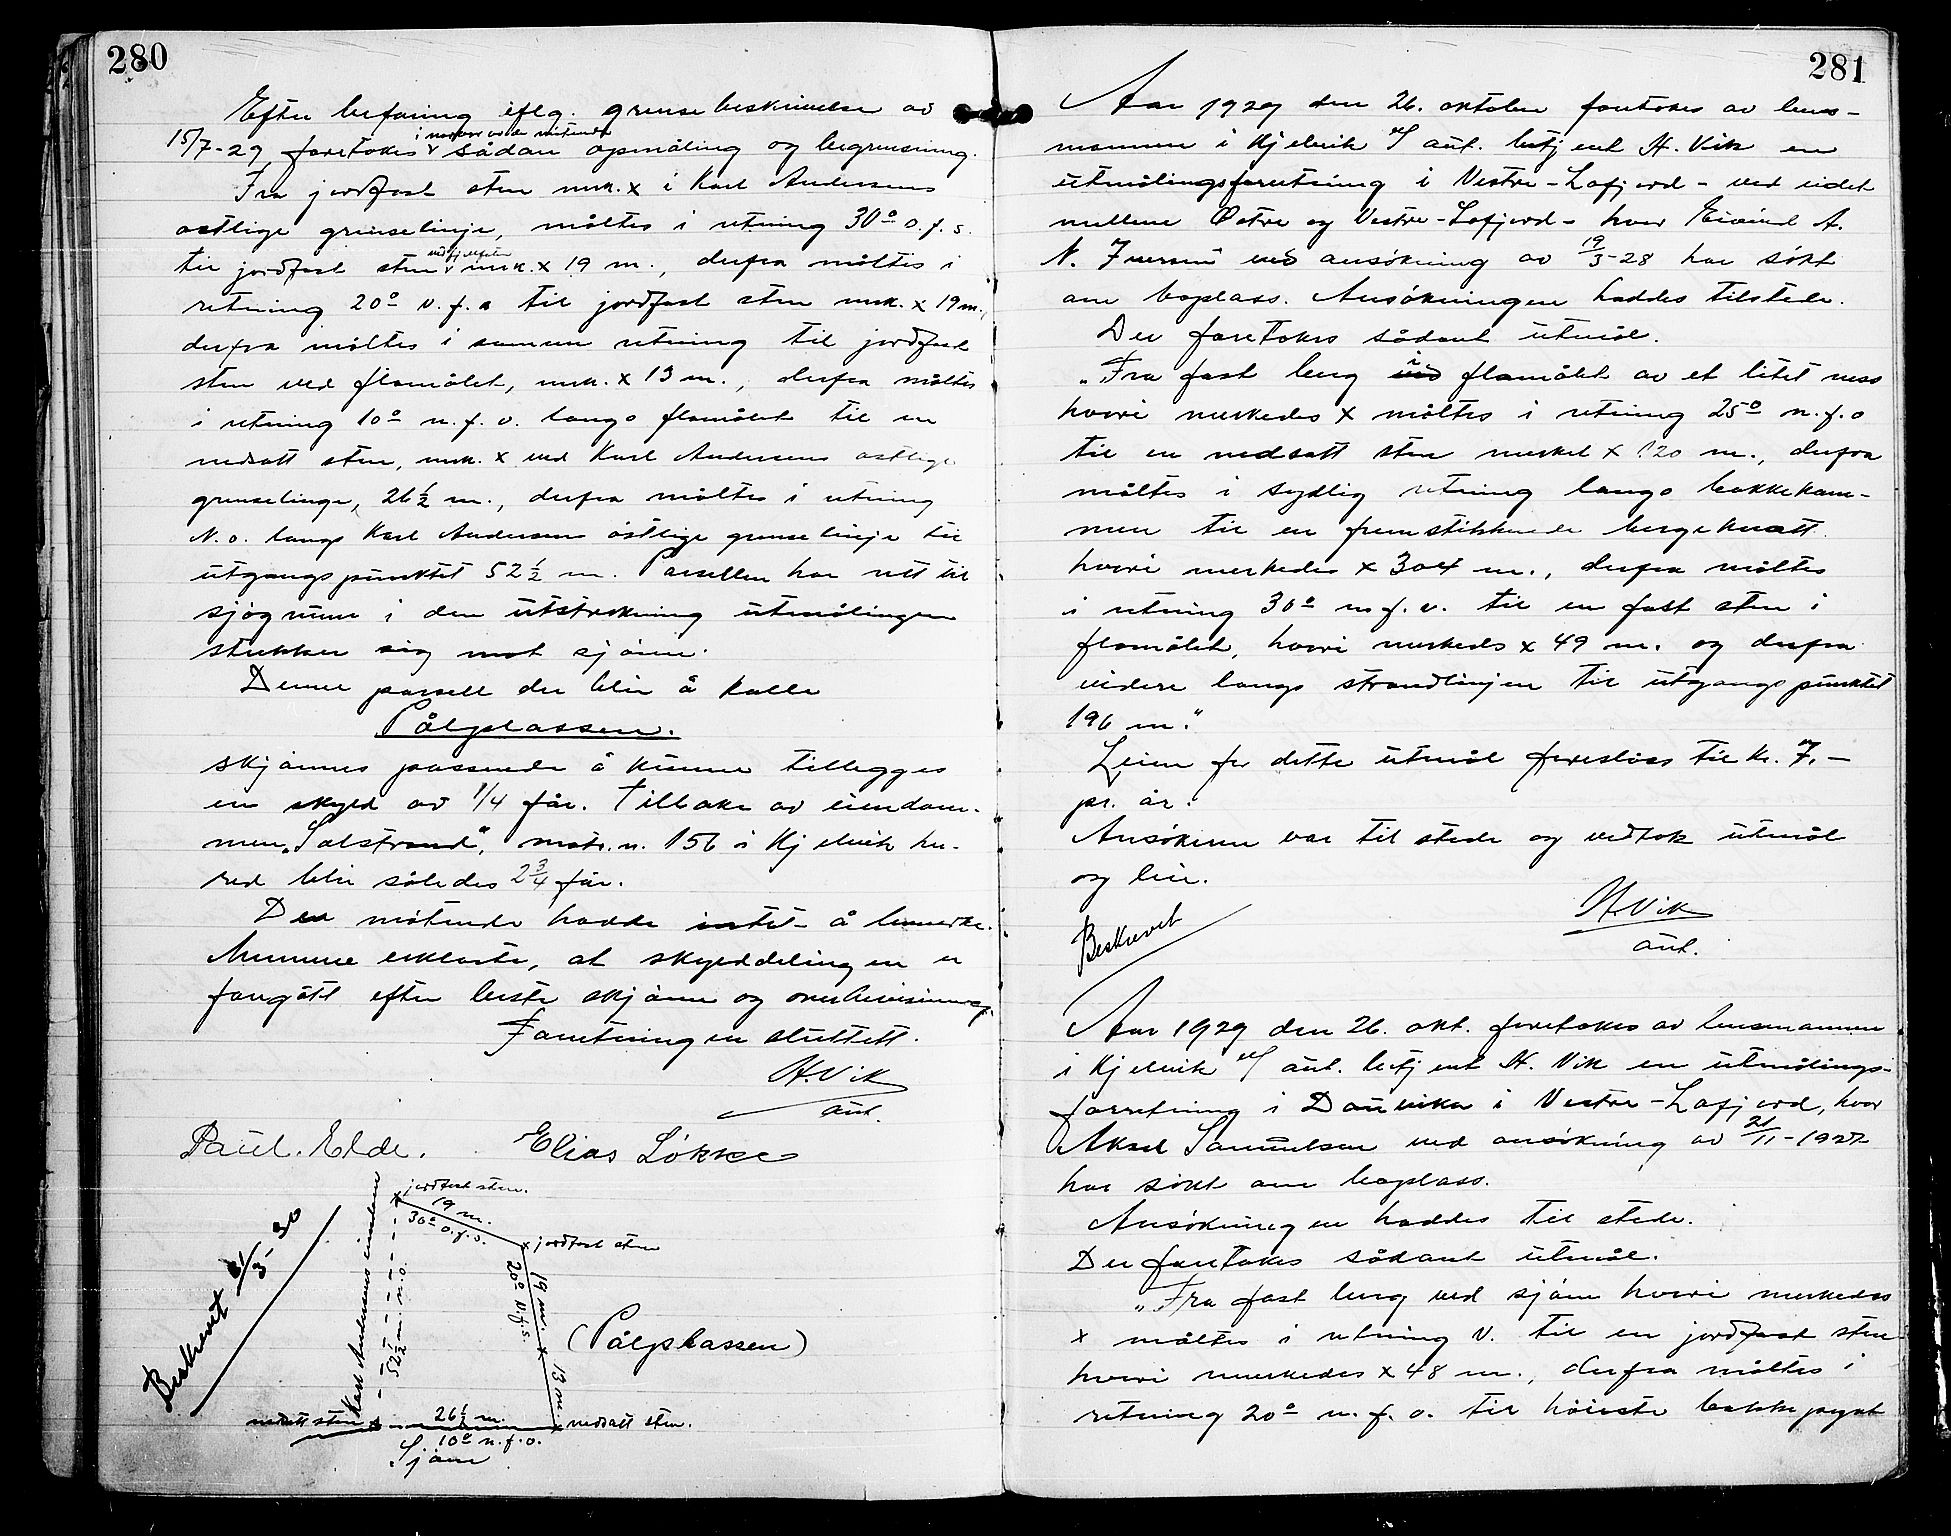 280
Efter befaring iflg. grensebeskrivelse av
i nærvær av de møtende
15/7-29, foretokes sådan opmåling og begrensning.
Fra jordfast sten mrk. x i Karl Andersens
østlige grenselinje, måltes i retning 30° o.f.s.
ved fjellfoten
til jordfast sten mrk. x 19 m., derfra måltes i
retning 20° v.f.s til jordfast sten mrk. x 19 m.,
derfra måltes i samme retning til jordfast
sten ved flomålet, mrk. x 13 m., derfra måltes
i retning 10° n.f.v. langs flomålet til en
nedsatt sten, mrk. x ved Karl Andersens østlige
grenselinje, 26 1/2 m., derfra måltes i retning
N.o. langs Karl Andersens østlige grenselinje til
utgangspunktet 52 1/2 m. Parsellen har rett til
sjøgrunn i den utstrekning utmålingen
strekker sig mot sjøen.
Denne parsell der blir å kalle
Pålsplassen.
skjønnes passende å kunne tillegges
en skyld av 1/4 får. Tilbake av eiendom-
men „Solstrand“, matr.n. 156 i Kjelvik her-
red blir således 2 3/4 får.
De møtende hadde intet å bemerke.
Mennene erklærte, at skylddelingen er
foregått efter beste skjønn og overbevisning.
Forretningen sluttett.
H. Vik
aut.
Paul. Elde. Elias Løkke
Beskrevet 21/3-30
Karl Andersens eiendom
52 1/2 m. n.o.
jordfast sten.
19 m.
30° o.f.s.
jordfast sten
19 m.
20° v.f.s.
13 m.
(Pålsplassen)
nedsatt sten
26 1/2 m.
nedsatt sten.
10° n.f.o.
Sjøen
281
Aar 1929 den 26. oktober foretokes av lens-
mannen i Kjelvik v/ aut. betjent H. Vik en
utmålingsforretning i Vestre-Lafjord - ved eidet
mellem Østre og Vestre-Lafjord - hvor Eivind A.
N. Iversen ved ansökning av 19/3-28 har søkt
om boplass. Ansökningen haddes tilstede.
Der foretokes sådant utmål.
„Fra fast berg i flomålet av et litet ness
hvori merkedes x måltes i retning 25° n.f.o
til en nedsatt sten merket x 120 m., derfra
måltes i sydlig retning langs bakkekam-
men til en fremstikkende bergknatt
hvori merkedes x 304 m., derfra måltes
i retning 30° n.f.v. til en fast sten i
flomålet, hvori merkedes x 49 m. og derfra
videre langs strandlinjen til utgangspunktet
196 m.“
Leien for dette utmål foreslåes til kr. 7,-
pr. år.
Ansökeren var til stede og vedtok utmål
og leie.
H. Vik
aut.
Beskrevet
Aar 1929 den 26. okt. foretokes av lensmannen
i Kjelvik v/ aut. betjent H. Vik en utmålings-
forretning i Dauvika i Vestre-Lafjord, hvor
Aksel Samuelsen ved ansökning av 21/11-1927
har søkt om boplass.
Ansökningen haddes til stede.
Der foretokes sådant utmål.
„Fra fast berg ved sjøen hvori merkedes
x måltes i retning V. til en jordfast sten
hvori merkedes x 48 m., derfra måltes i
retning 20° n.f.o. til høieste bakkepynt